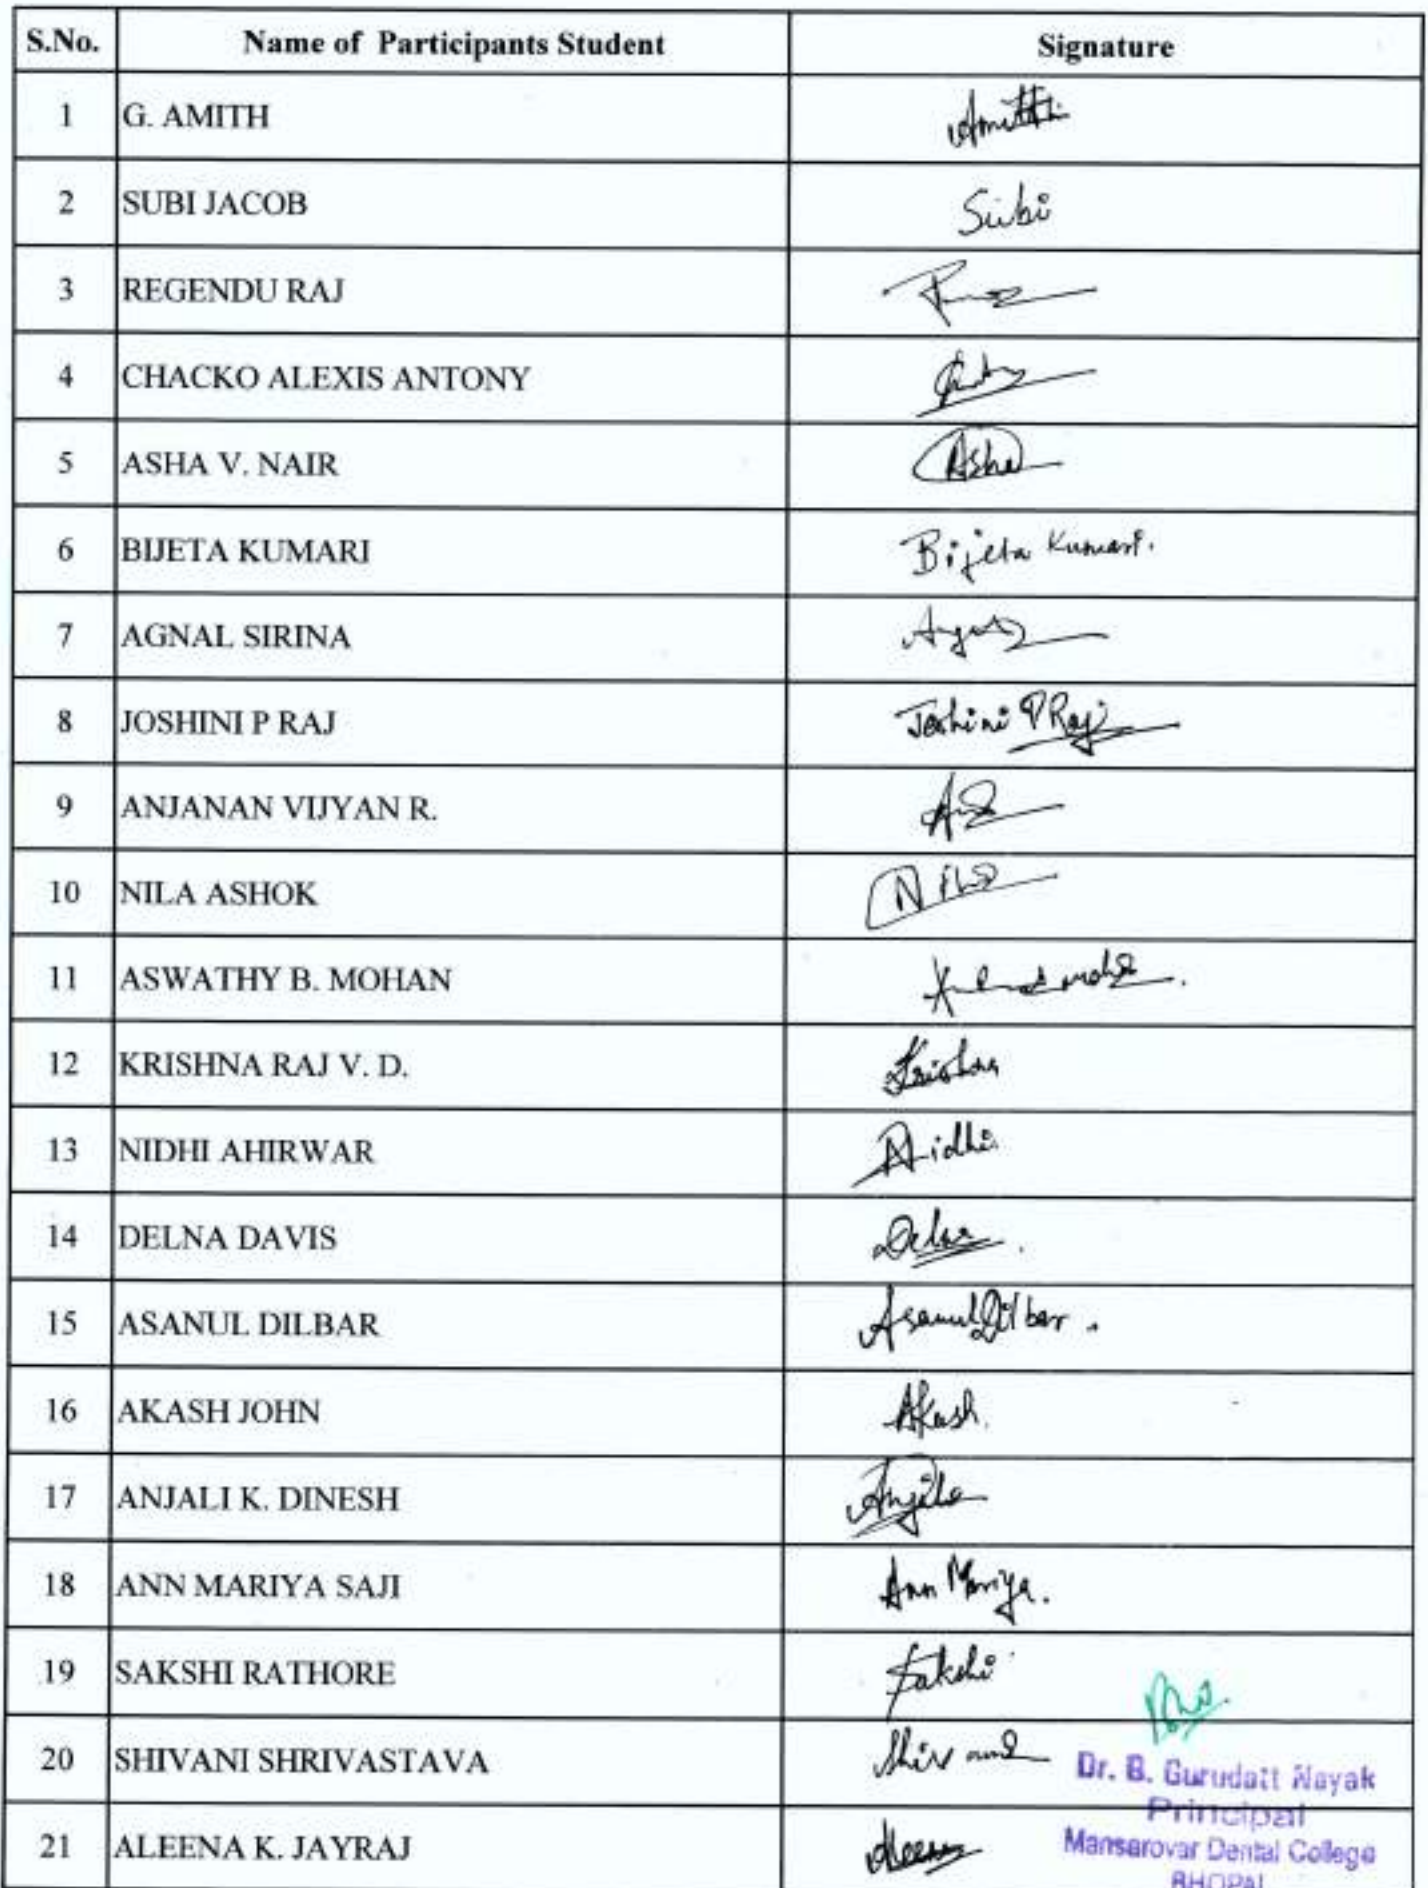 S.No. Name of Participants Student Signature
1 G. AMITH Amith
2 SUBI JACOB Subi
3 REGENDU RAJ
4 CHACKO ALEXIS ANTONY
5 ASHA V. NAIR Asha
6 BIJETA KUMARI Bijeta Kumari.
7 AGNAL SIRINA
8 JOSHINI P RAJ Joshini P Raj
9 ANJANAN VIJYAN R.
10 NILA ASHOK Nila
11 ASWATHY B. MOHAN
12 KRISHNA RAJ V. D. Krishna
13 NIDHI AHIRWAR Nidhi
14 DELNA DAVIS Delna
15 ASANUL DILBAR Asanul Dilbar.
16 AKASH JOHN Akash.
17 ANJALI K. DINESH
18 ANN MARIYA SAJI Ann Mariya.
19 SAKSHI RATHORE Sakshi
20 SHIVANI SHRIVASTAVA
Dr. B. Gurudatt Nayak
Principal
21 ALEENA K. JAYRAJ Aleena
Mansarovar Dental College
BHOPAL